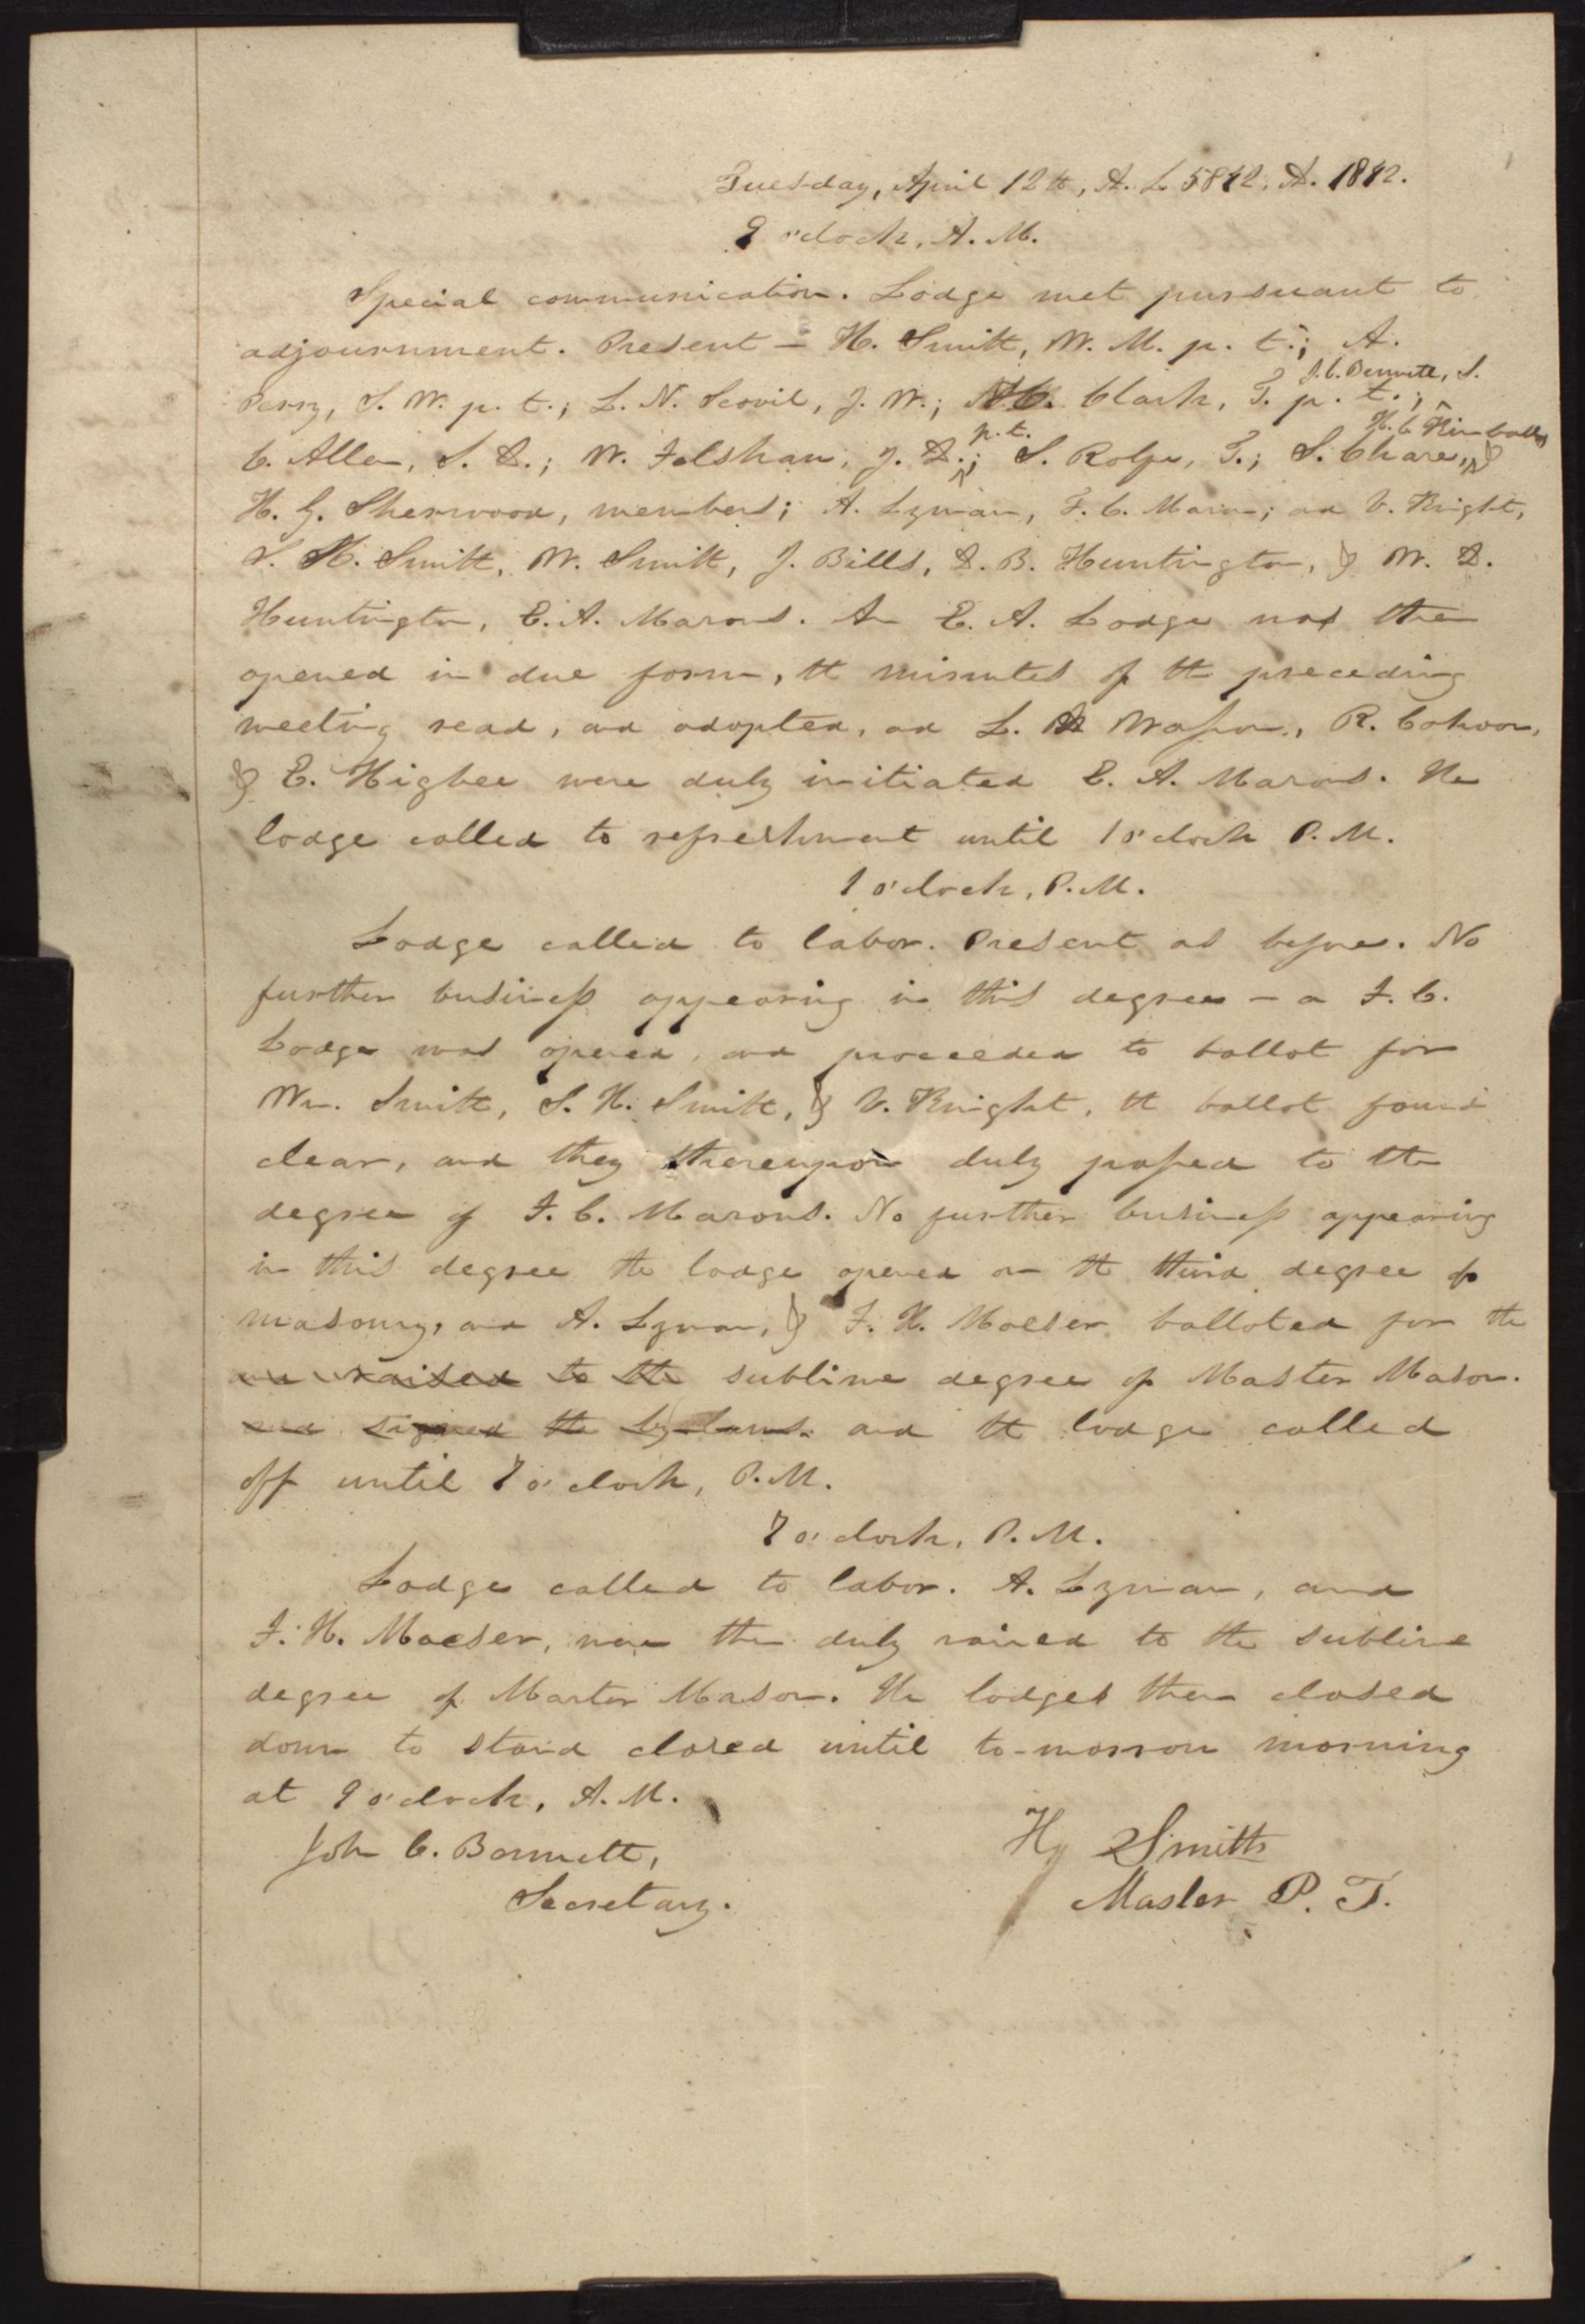 Tuesday, April 12th, A. L. 5842, A. 1842.
9 o'clock, A. M.
Special communication. Lodge met pursuant to
adjournment. Present — H. Smith, W. M. p. t.; A.
J. C. Bennett, S.
Perry, S. W. p. t.; L. N. Scovil, J. W.; H. C. Clark, T. p. t.;
p. t. H. C. Kimball,
C. Allen, S. D.; W. Felshaw, J. D.; S. Rolfe, T.; S. Chase, &
H. G. Sherwood, members; A. Lyman, F. C. Mason; and V. Knight,
S. H. Smith, W. Smith, J. Bills, D. B. Huntington, & W. D.
Huntington, E. A. Masons. An E. A. Lodge was then
opened in due form, the minutes of the preceding
meeting read, and adopted, and L. Wasson, R. Cahoon,
& E. Higbee were duly initiated E. A. Masons. The
lodge called to refreshment until 1 o'clock P. M.
1 o'clock, P. M.
Lodge called to labor. Present as before. No
further business appearing in this degree — a F. C.
Lodge was opened, and proceeded to ballot for
Wm. Smith, S. H. Smith, & V. Knight, the ballot found
clear, and they thereupon duly passed to the
degree of F. C. Masons. No further business appearing
in this degree the lodge opened on the third degree of
masonry, and A. Lyman, & F. H. Moeser balloted for the
and raised to the sublime degree of Master Mason.
and signed the by-laws. and the lodge called
off until 7 o'clock, P. M.
7 o'clock, P. M.
Lodge called to labor. A. Lyman, and
F. H. Moeser, were then duly raised to the sublime
degree of Master Mason. The lodges then closed
down to stand closed until to-morrow morning
at 9 o'clock, A. M.
John C. Bennett,
Secretary.
Hy Smith
Master P. T.